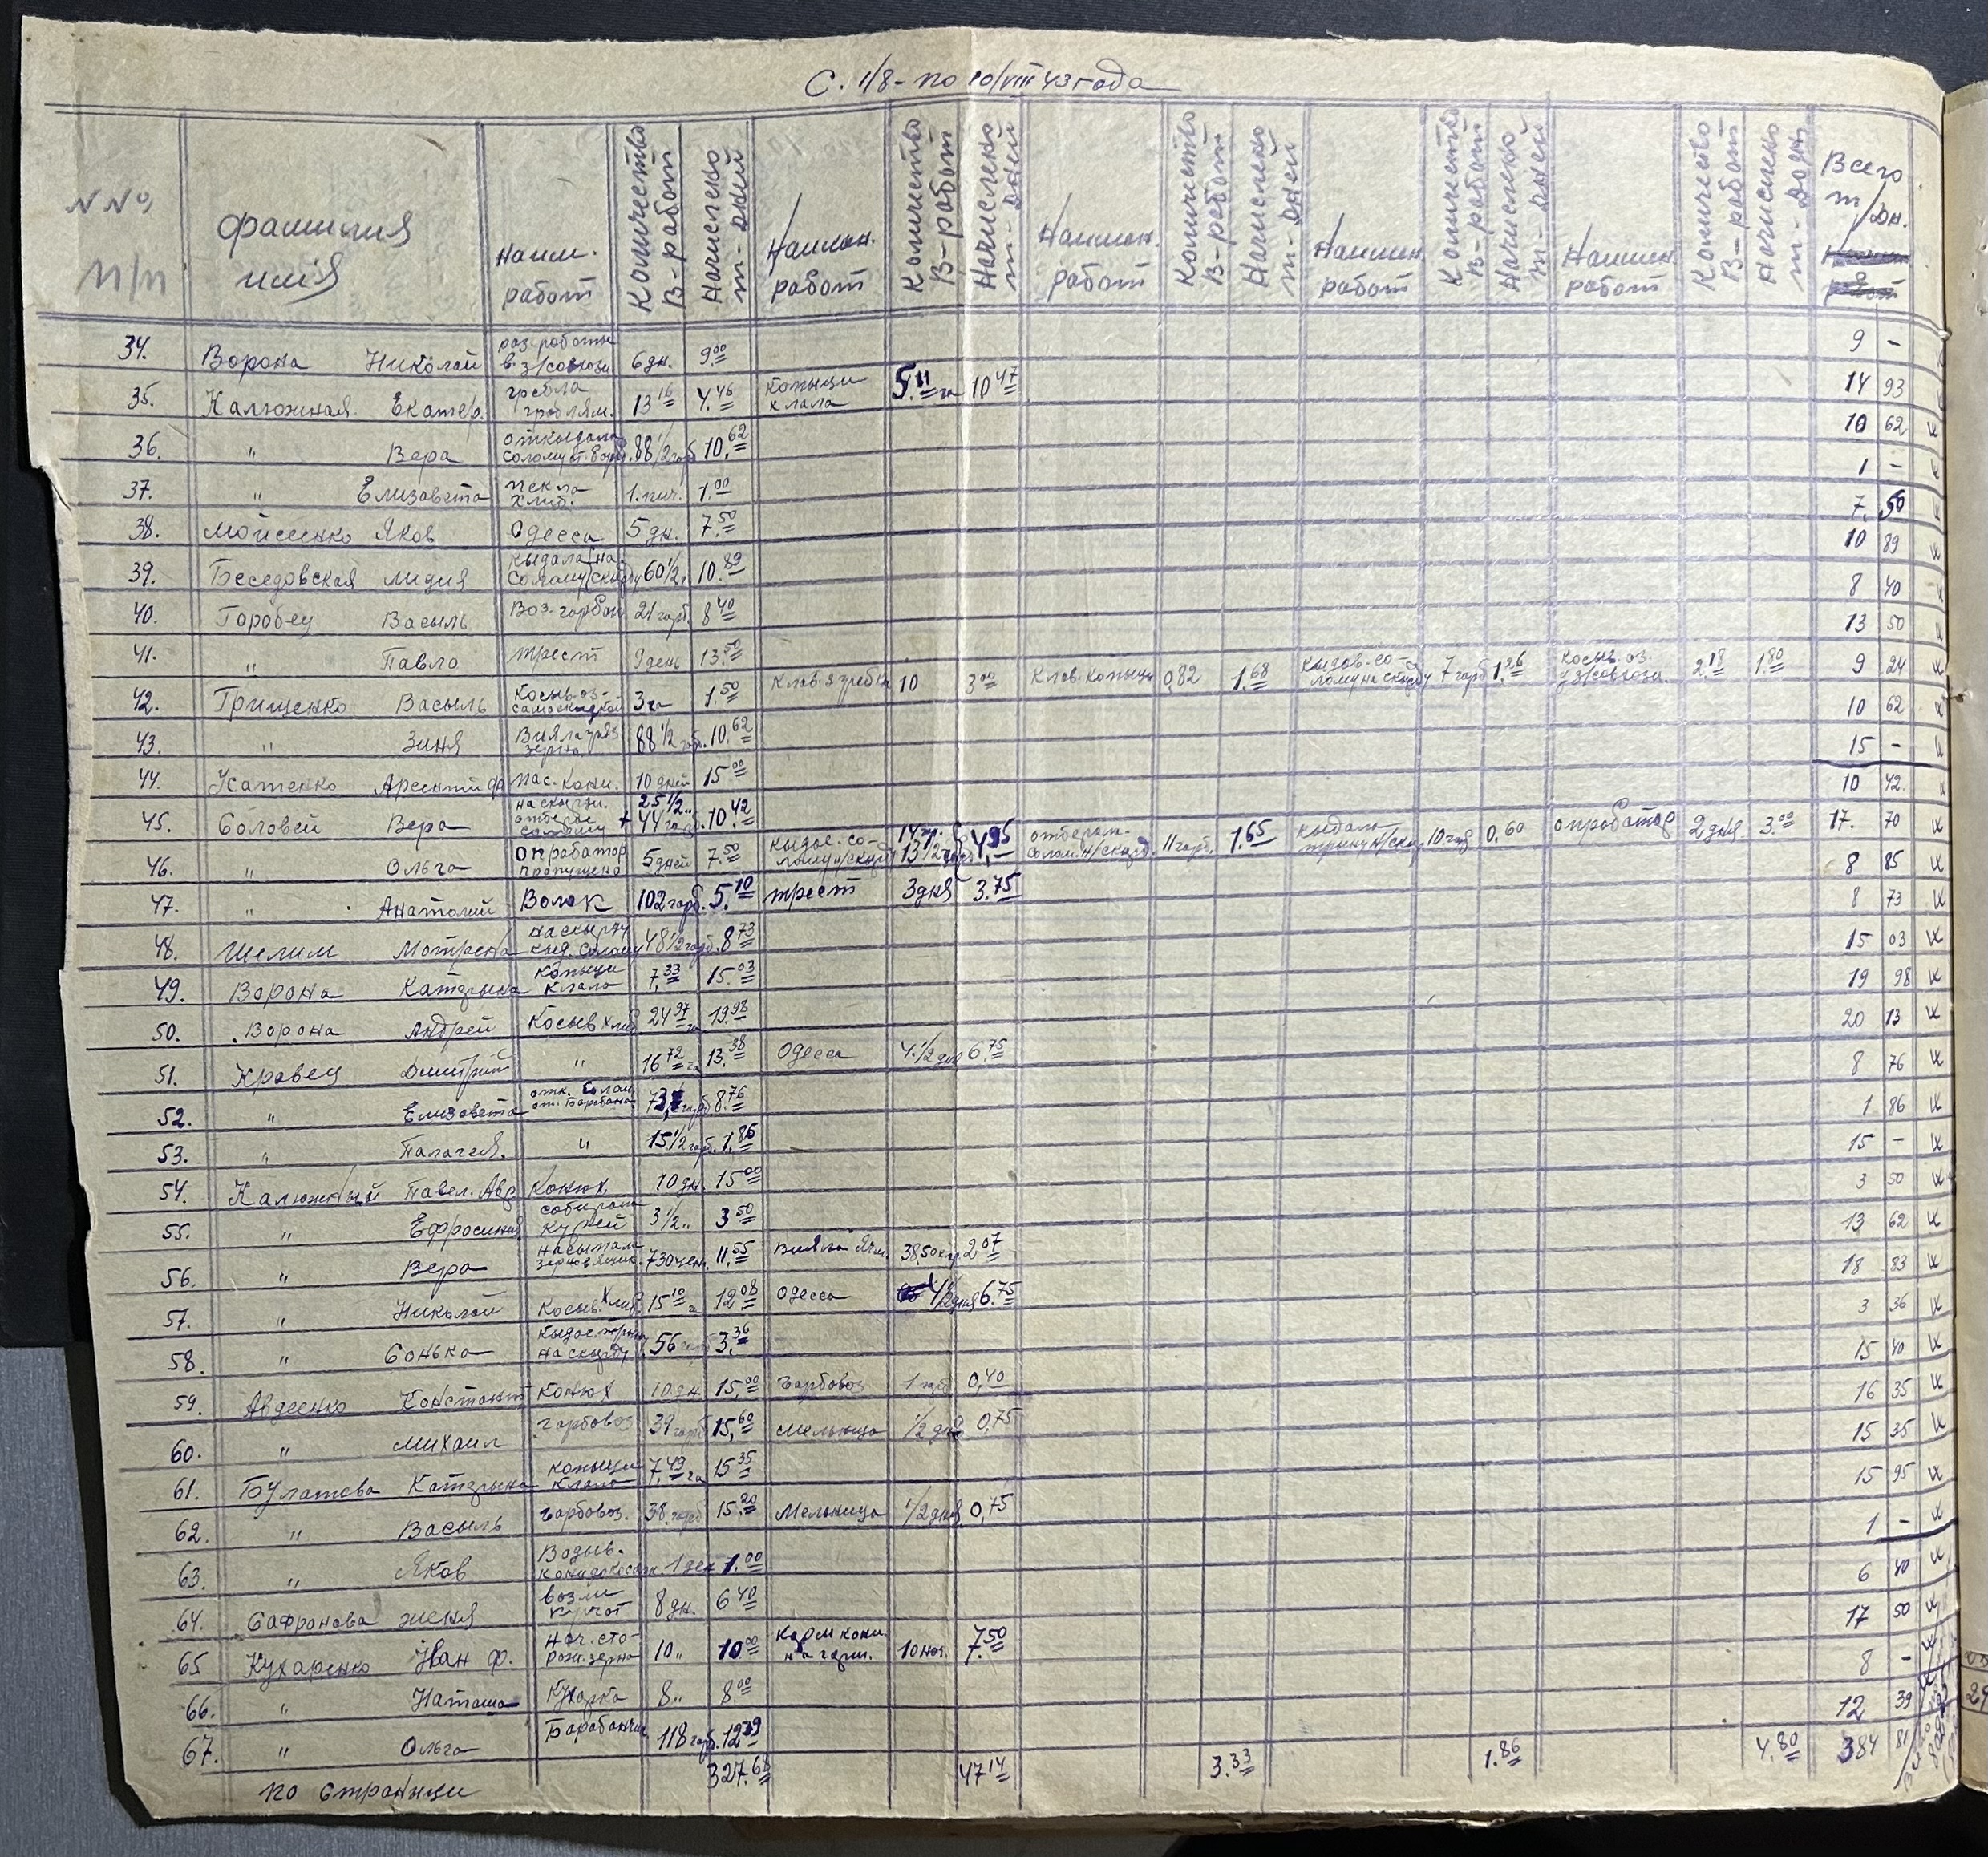 С. 1/8 - по 10/VIII 43 года
N Nо, п/п фамилия имія Наим. работ Количество В-работ Начислено т-дней Наимен. работ Количество В-работ Начислено т-дней Наимен. работ Количество В-работ Начислено т-дней Наимен. работ Количество В-работ Начислено т-дней Наимен. работ Количество В-работ Начислено т-додн. Всего т/дн.
34. Ворона Николай раз. работы в. з/совхози 6 дн. 9.00 9 -
35. Калюжная Екатер. гребла 13 16 4.46 копыци клала 5.11 га 10 47 14 93
36. " Вера откыдала солому 88 1/2 гарб 10.62 10 62
37. " Елизавета пекла хлиб. 1. 1.00 1 -
38. Мойсеенко Яков Одесса 5 дн. 7.50 7. 50
39. Беседовская лидия кыдала на солому 60 1/2 10.89 10 89
40. Горобец Васыль Воз. гарбои 21 гарб. 8 40 8 40
41. " Павло трест 9 день 13.50 13 50
42. Грищенко Васыль Косыв. оз- самоскыдкой 3 га 1.50 10 3 00 Клав. копыци 0,82 1.68 кыдав. со- лому на скырду 7 гарб 1.26 косыв. оз. у з/совхози. 2.18 1.80 9 24
43. " Зиня зерна 88 1/2 10.62 10 62
44. Усатенко Арсентий ф пас. кони. 10 дней 15 00 15 -
45. Соловей Вера солому 25 1/2 + 44 10.42 10 42
46. " Ольга опробатор пропущено 5 дней 7.50 кыдає. со- лому 13 1/2 4,95 11 гарб. 1.65 кыдала 10 гарб 0.60 опробатор 2 дня 3.00 17. 70
47. " Анатолий Волок 102 гарб. 5.10 трест 3 дня 3.75 8 85
48. Шелим Мотрена на скырду кыд. солому 48 1/2 гарб. 8 73 8 73
49. Ворона Катерына копыци клала 7.33 15.03 15 03
50. Ворона Андрей Косыв хлиб 24 97 га 19.98 19 98
51. Кравец Дмитрий " 16 72 га 13.38 Одесса 4. 1/2 дня 6.75 20 13
52. " Елизовета отк. солом. от. Барабана 73, гарб 8.76 8 76
53. " Палагея. " 15 1/2 гарб. 1.86 1 86
54. Калюжный Павел. Авр Конюх. 10 дн. 15 00 15 -
55. " Ефросиния собирала курей 3 1/2 " 3 50 3 50
56. " Вера насыпала 730 11.55 Вияла 3850 кг. 2 07 13 62
57. " Николай Косыв. хлиб. 15 10 га 12 08 Одесса 4 1/2 дня 6.75 18 83
58. " Сонька на скырду 56 3.36 3 36
59. Авдеенко Констант. конюх 10 дн. 15.00 Гарбовоз 1 гарб 0,40 15 40
60. " Михаил гарбовоз 39 гарб 15,60 Мельница 1/2 дня 0,75 16 35
61. Булатова Катерына копыци клала 7,49 га 15 35 15 35
62. " Васыль Гарбовоз. 38. гарб 15.20 Мельница 1/2 дня 0,75 15 95
63. " Яков Водыв. 1 ден 1.00 1 -
64. Сафронова женя возли 8 дн. 6 40 6 40
65 Кухаренко Иван ф. ноч. сто- рож. зерна 10 " 10 00 Корм. кони. на гарм. 10 ноч. 7.50 17 50
66. " Наташа Кухарка 8 " 8 00 8 -
67. " Ольга Барабанчик 118 гарб. 12 39 12 39
по страныци 327.68 47 14 3.33 1.86 4.80 384 81